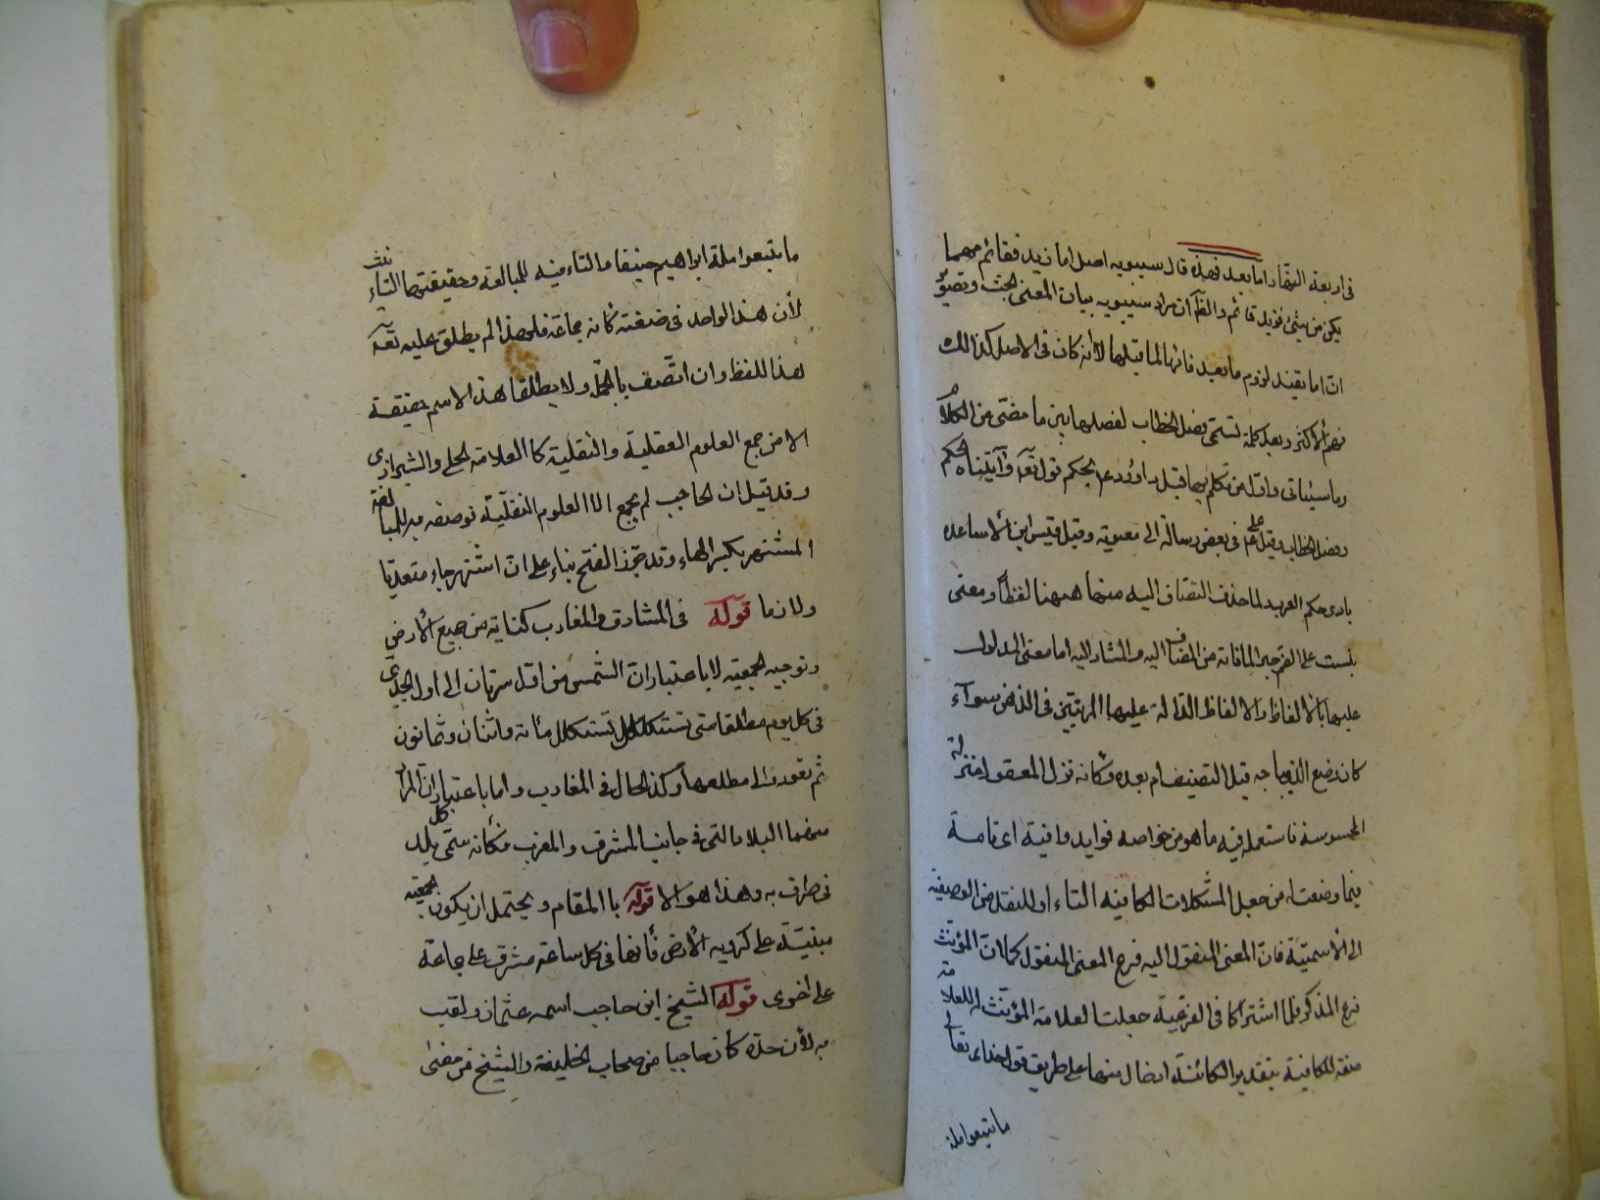 فى اربعة النهار اما بعد فهذه قال سيبويه اصل اما زيد فقائم مهما
يكن من شئ فزيد قائم والظ ان مراد سيبويه بيان المعنى البحت وتصوّر
ان اما يفيد لزوم ما بعد فائها لما قبلها لانه كان فى الاصل كذالك
بعد كلمة تسمى فصل الخطاب لفصلها بين ما مضى من الكلام
وما سيأتى واوّل من تكلم بها قيل داود ع بحكم قوله تعـ وآتيناه الحكم
وفصل الخطاب وقيل على ع فى بعض رسالة الى معوية وقيل قيس ابن الاساعده
لما حذف المضاف اليه منها ههنا لفظاً ومعنى
بنيت على الضم جبرا لما فاته من المضاف اليه والمشار اليه اما معنى المدلول
عليها بالالفاظ والالفاظ الدالة عليها المرتبتين فى الذهن سوآء
كان وضع الديباجه قبل التصنيف ام بعده وكانه نزل المعقول منزلة
المحسوسة فاستعمله فيه ما هو من خواصه فوايد وافية اى تامة
فيما وضعت له من حل المشكلات الكافيه التاء اوللنقل من الوصفية
الى الاسمية فان المعنى المنقول اليه فرع المعنى المنقول كما ان المؤنث
فرع المذكر فلما اشتراكا فى الفرعية جعلت لعلامة المؤنث له للعلامة
صفة للكافية بتقدير الكائنة على طريق قول خداى تعالى
ما تتبعوا ملة
ما تتبعوا ملة ابراهيم حنيفا والتاء فيه للمبالغة وحقيقتها التاء نيث
لأن هذ الواحد فى صنفته كأنه جماعة فلهذا لم يطلق عليه تعـ
هذا للفظ وان اتّصف با ولا يطلقا هذ الاسم حقيقة
الا من جمع العلوم العقلية والنقلية كا العلامة الحلى والشيرازى
وقد قيل ان الحاجب لم يجمع الا العلوم النقليّة فوصفه به للمبالغة
المشتهر بكسر الهاء وقد جوّز الفتح بناء على ان اشتهر جاء متعديا
ولازما قوله فى المشارق والمغارب كناية من جميع الارض
وتوجيه الجمعية لا باعتبار ان الشمس من اول سرطان الى اول الجدى
فى كل يوم مطلقا حتى تستكل تستكلل مائة واثنان وثمانون
ثم تعود الى مطلعها وكذ الحال فى المغارب واما باعتبار ان المراد
منهما البلاد التى فى جانبا المشرق والمغرب فكأنه سمّى كل بلد
فى طرف به وهذا هو الا قوله با المقام ويحتمل ان يكون الجمعية
مبنيّة على كروية الأرض فأنها فى كل ساعة مشرق على جاعة
على اخرى قوله الشيخ ابن حاجب اسمه عثمان ولقب
به لأن جدّه كان حاجبا من صحاب الخليفة والشيخ من مضى